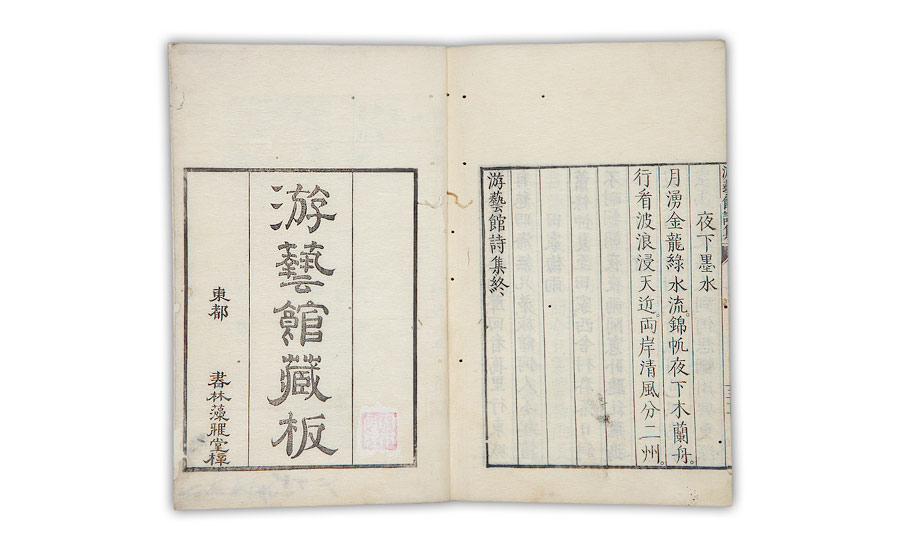 夜下墨水
月湧金龍綠水流。錦帆夜下木蘭舟。
行看波浪浸天近。兩岸清風分二州。
游藝館詩集終、
游藝館藏板
東都
書林藻雅堂梓